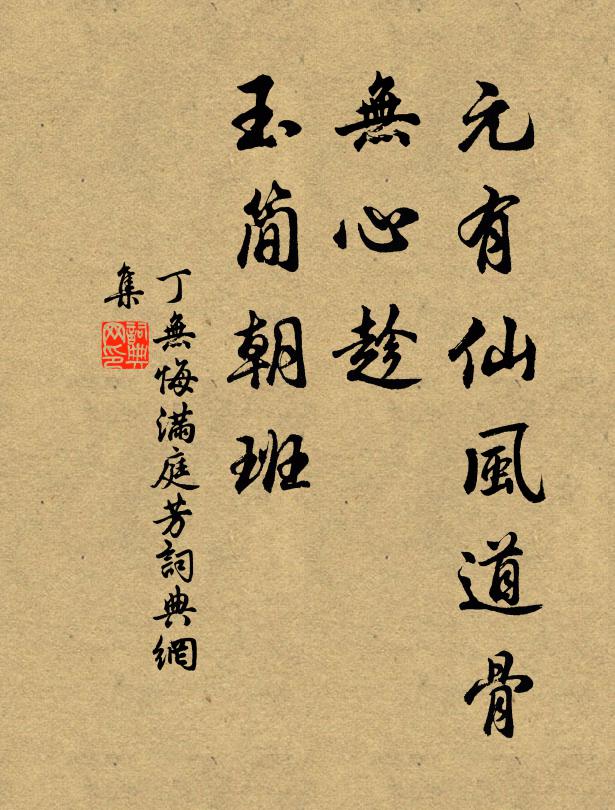 元有仙風道骨
無心趁
玉简朝班
丁無悔滿庭芳詞典網
集
詞典
网印